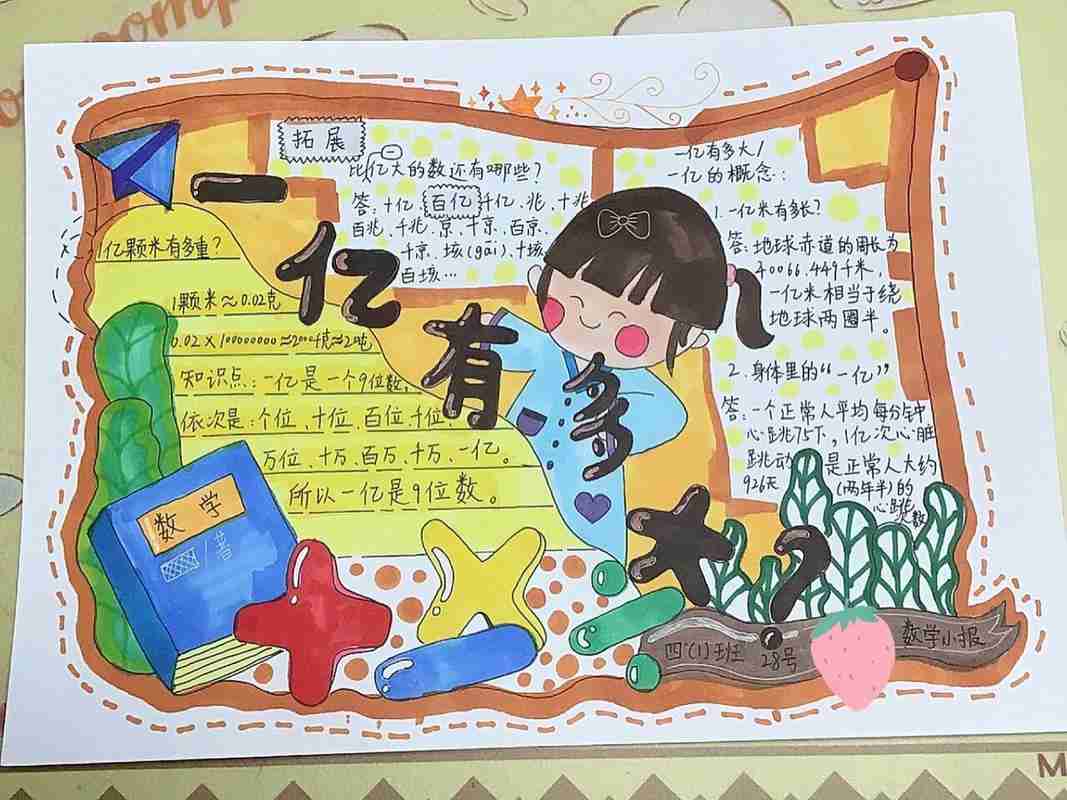 一亿有多大?
拓展
比1亿大的数还有哪些?
答:十亿、百亿、千亿、兆、十兆、
百兆、千兆、京、十京、百京、
千京、垓(gāi)、十垓、
百垓…
1亿颗米有多重?
1颗米≈0.02克
0.02×100000000≈2000千克≈2吨
知识点:一亿是一个9位数,
依次是:个位、十位、百位、千位、
万位、十万、百万、千万、一亿。
所以一亿是9位数。
一亿有多大/
一亿的概念:
1.一亿米有多长?
答:地球赤道的周长为
40066.449千米,
一亿米相当于绕
地球两圈半。
2.身体里的“一亿”
答:一个正常人平均每分钟
心跳75下,1亿次心脏
跳动 是正常人大约
926天 (两年半)的
心跳数
数学
/著
四(1)班
28号
数学小报